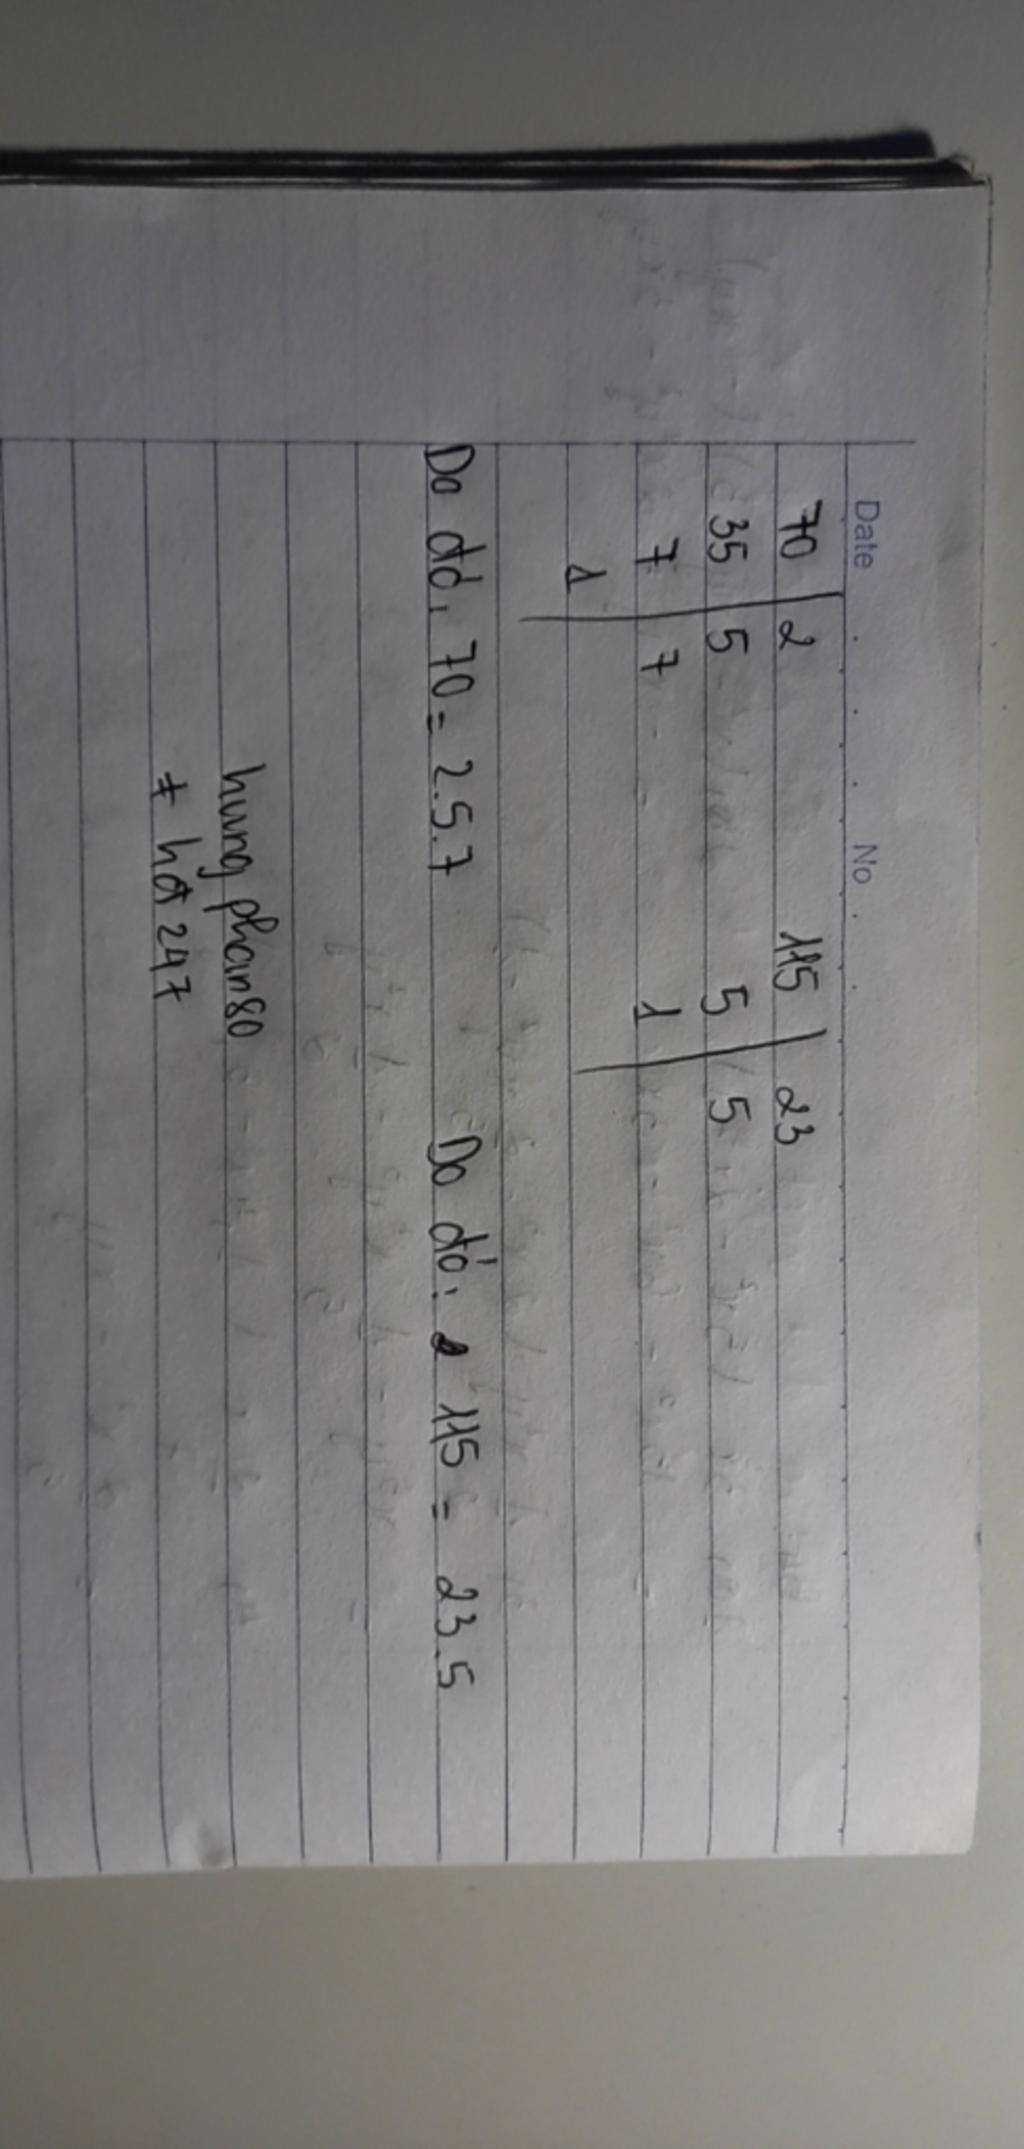 Date No
70 | 2 115 | 23
35 | 5 5 | 5
7 | 7 1
1
Do đó, 70 = 2.5.7 Do đó: 115 = 23.5
hungphan80
# hot 247